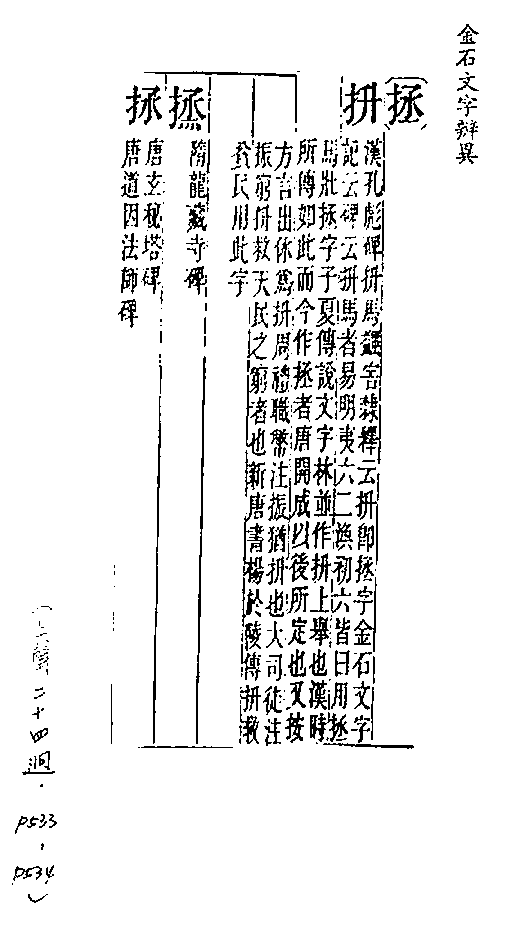 金石文字辨異
（拯）
抍
漢孔彪碑抍馬蠲害隸釋云抍即拯字金石文字
記云碑云抍馬者易明夷六二渙初六皆曰用拯
馬壯拯字子夏傳說文字林並作抍上舉也漢時
所傳如此而今作拯者唐開成以後所定也又按
方言出休為抍周禮職幣注振猶抍也大司徒注
振窮抍救天民之窮者也新唐書楊於陵傳抍救
貧民用此字
隋龍藏寺碑
唐玄秘塔碑
唐道因法師碑
（上聲二十四迥．
P533
，
P534）